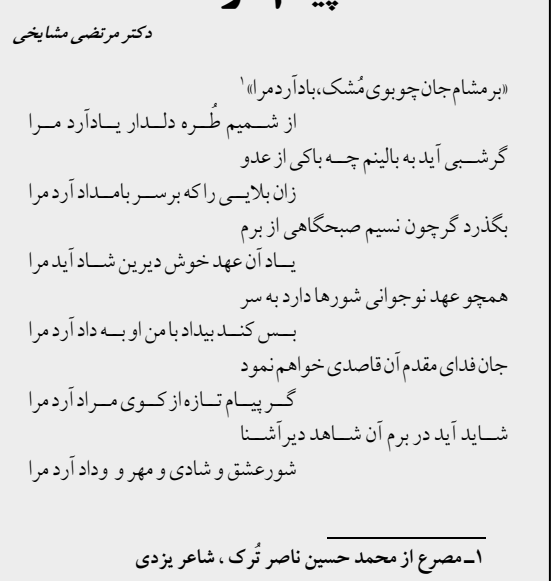 دکتر مرتضی مشایخی
«بر مشام جان چو بوی مُشک، باد آرد مرا»۱
از شمیم طُره دلدار یاد آرد مرا
گر شبی آید به بالینم چه باکی از عدو
زان بلایی را که بر سر بامداد آرد مرا
بگذرد گر چون نسیم صبحگاهی از برم
یاد آن عهد خوش دیرین شاد آید مرا
همچو عهد نوجوانی شورها دارد به سر
بس کند بیداد با من او به داد آرد مرا
جان فدای مقدم آن قاصدی خواهم نمود
گر پیام تازه از کوی مراد آرد مرا
شاید آید در برم آن شاهد دیر آشنا
شور عشق و شادی و مهر و وداد آرد مرا
۱ـ مصرع از محمد حسین ناصر تُرک ، شاعر یزدی